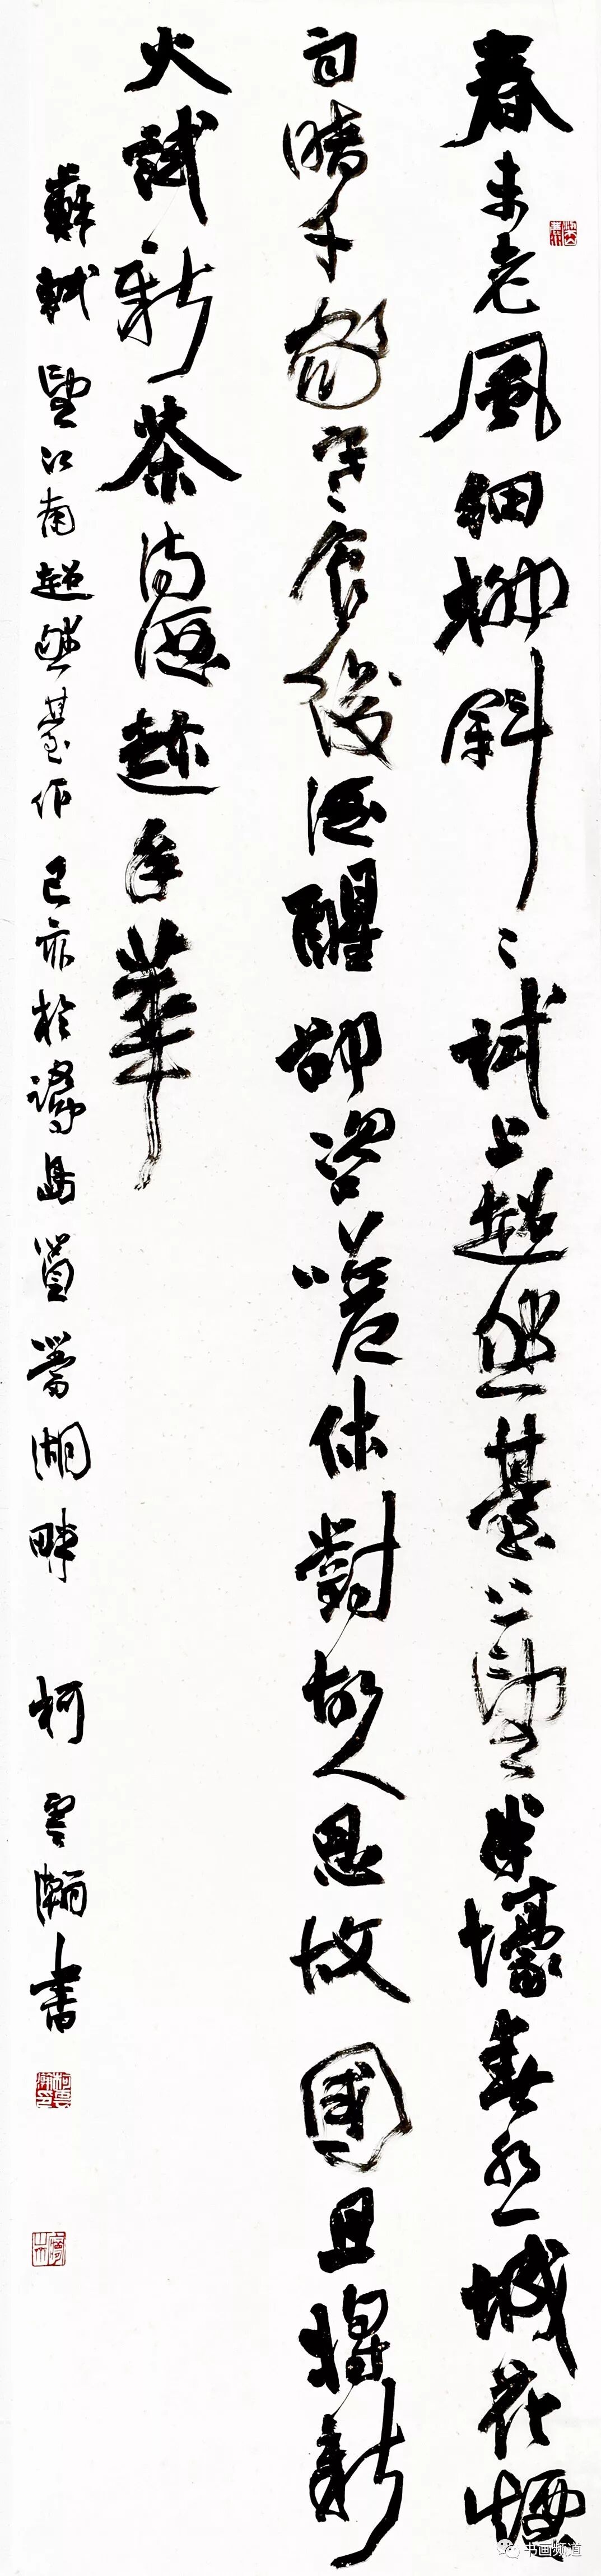 春未老風細柳斜〻試上超然臺上望半壕春水一城花煙
雨暗千家寒食後酒醒却咨嗟休對故人思故國且將新
火試新茶詩酒趁年華
蘇軾望江南超然臺作己亥於鷺島篔簹湖畔 柯雲瀚書
柯雲瀚印
书画频道